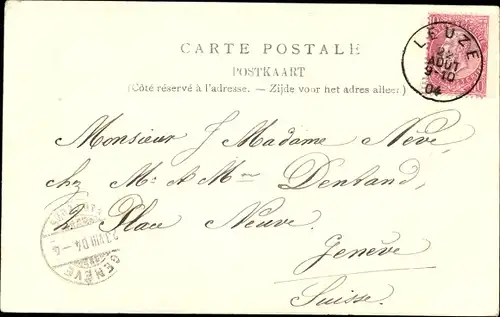 CARTE POSTALE
POSTKAART
(Côté réservé à l'adresse. — Zijde voor het adres alleen.)
LEUZE
AOUT
9-10
04
Monsieur & Madame Nève
chz Mr & Mme Dentand,
2 Place Neuve.
Genève
Suisse.
23 VIII 04 — 6
GENÈVE